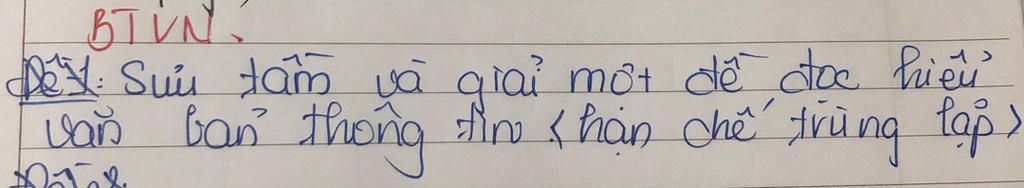 BTVN.
Đề 1: Sưu tầm và giải một đề đọc hiểu
văn bản thông tin (hạn chế trùng lặp)